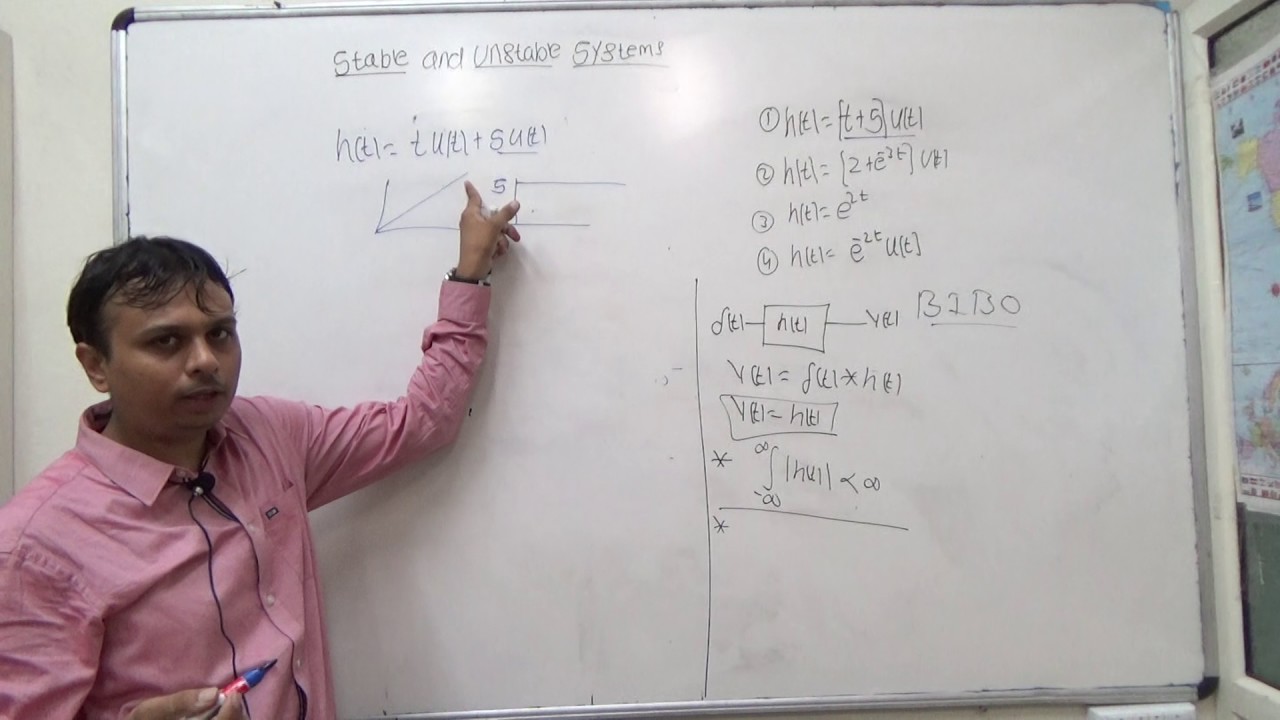 Stable and Unstable Systems
h(t) = t u(t) + 5 u(t)
5
① h(t) = [t+5] u(t)
② h(t) = [2+e^-3t] u(t)
③ h(t) = e^2t
④ h(t) = e^-2t u(t)
δ(t) h(t) y(t) BIBO
y(t) = δ(t) * h(t)
y(t) = h(t)
* ∞∫-∞ |h(t)| < ∞
*